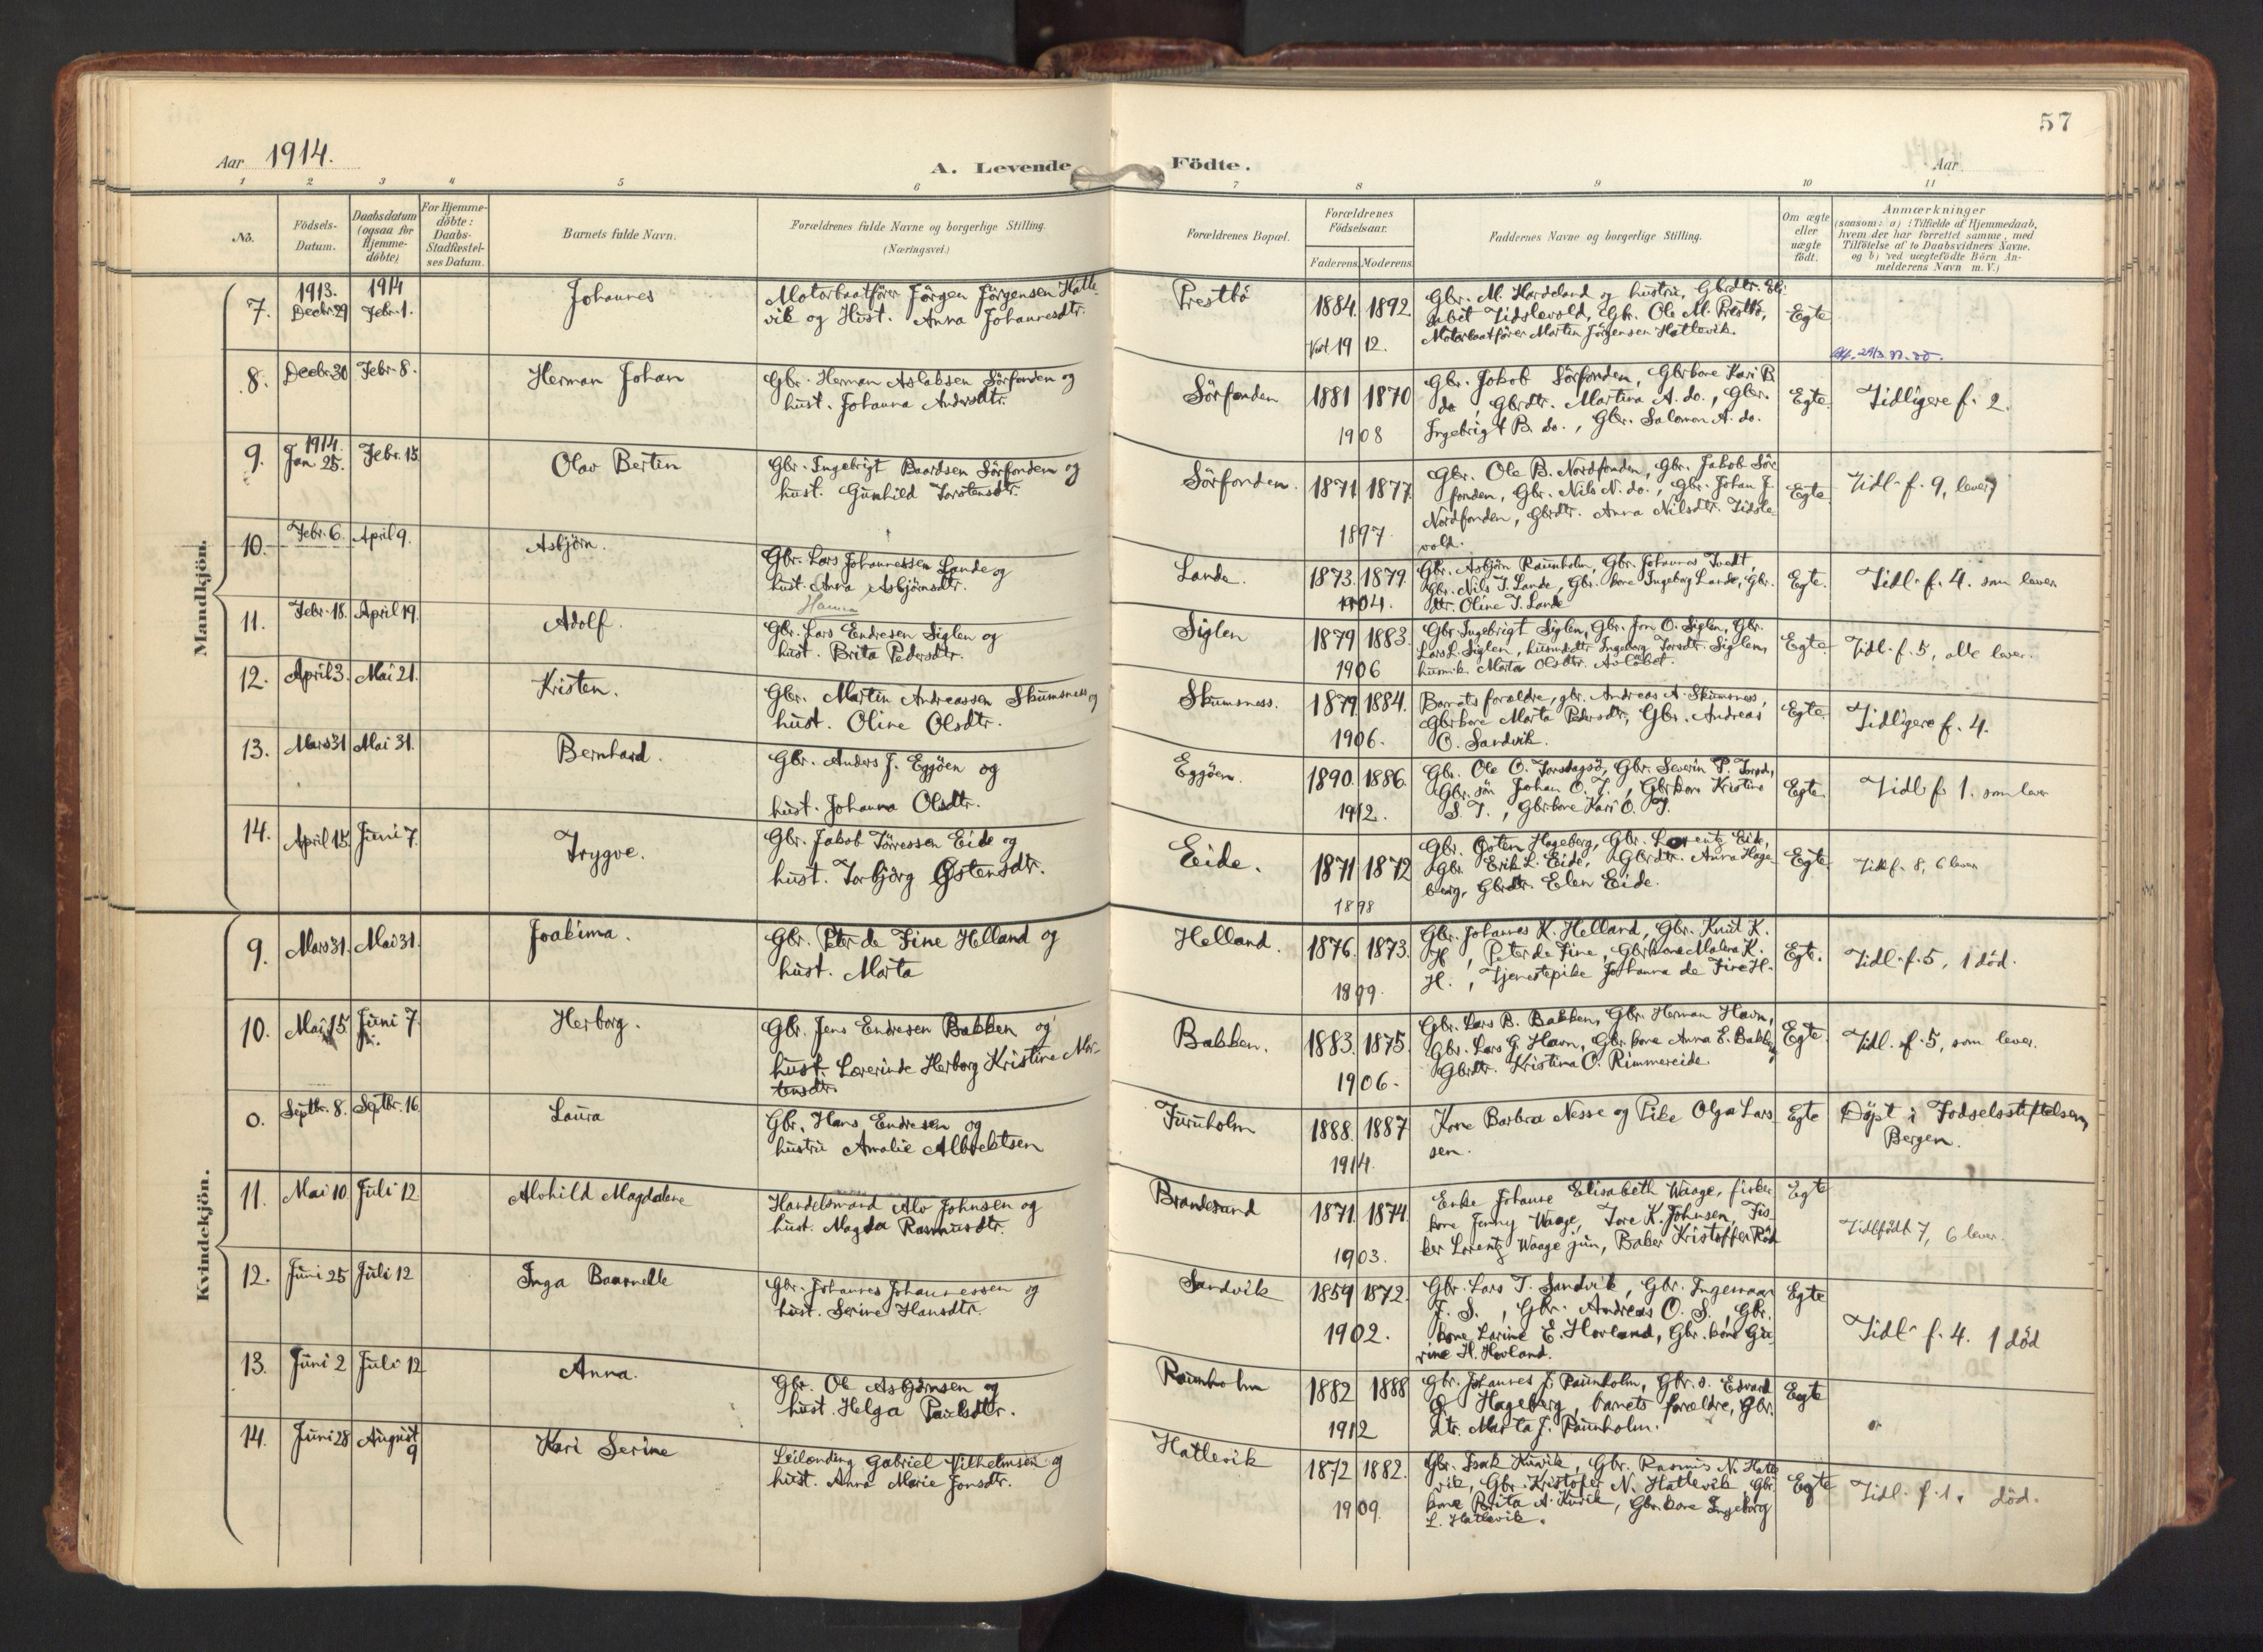 57
Aar 1914.
A. Levende Födte.
Aar
1 2 3 4 5 6 7 8 9 10 11
No.
Födsels-Datum.
Daabsdatum (ogsaa for Hjemme-döbte)
For Hjemme-döbte: Daabs-Stadfæstel-ses Datum.
Barnets fulde Navn.
Forældrenes fulde Navne og borgerlige Stilling.
(Næringsvei.)
Forældrenes Bopæl.
Forældrenes Födselsaar.
Faderens. Moderens.
Faddernes Navne og borgerlige Stilling.
Om ægte eller uægte födt.
Anmærkninger
(saasom: a) i Tilfælde af Hjemmedaab, hvem der har forrettet samme, med Tilföielse af to Daabsvidners Navne. og b) ved uægtefödte Börn An-melderens Navn m. V.)
Mandkjön.
7. 1913. Decbr. 29 1914 Febr. 1. Johannes
Motorbaatfører Jörgen Jörgensen Hatle-
vik og Hust. Anna Johannesdtr.
Prestbö 1884. 1892. 1912.
Gbr. M. Hardeland og hustru, Gbrdtr. Eli-
sabet Tidslevold, Gbr. Ole M. Prestbö,
Motorbaatfører Martin Jörgensen Hatlevik.
Egte
8. Decbr. 30 Febr. 8. Herman Johan
Gbr. Herman Aslaksen Sörfonden og
hust. Johanna Andersdtr.
Sörfonden 1881 1870 1908
Gbr. Jakob Sörfonden, Gbrkone Kari B.
do, Gbrdtr. Martina A. do., Gbr.
Ingebrigt B. do., Gbr. Salomon A. do.
Egte. Tidligere f. 2.
9. 1914. Jan. 25. Febr. 15 Olav Bertin
Gbr. Ingebrigt Baardsen Sörfonden og
hust. Gunhild Torstensdtr.
Sörfonden. 1871 1877. 1897.
Gbr. Ole B. Nordfonden, Gbr. Jakob Sör-
fonden, Gbr. Nils N. do., Gbr. Johan J.
Nordfonden, Gbrdtr. Anna Nilsdtr. Tidsle-
vold.
Egte. Tidl. f. 9, lever 7
10. Febr. 6. April 9. Asbjörn.
Gbr. Lars Johannessen Lande og
hust. Anna Asbjörnsdtr.
Lande. 1873. 1879. 1904.
Gbr. Asbjörn Raunholm, Gbr. Johannes Tvedt,
Gbr. Nils J. Lande, Gbr. kone Ingeborg Lande, Gbr.
dtr. Oline J. Lande
Egte. Tidl. f. 4. som lever
11. Febr. 18. April 19. Adolf.
Gbr. Lars Endresen Siglen og
hust. Brita Pedersdtr.
Siglen 1879 1883. 1906
Gbr. Ingebrigt Siglen, Gbr. Jon O. Siglen, Gbr.
Lars L. Siglen, husmdtr Ingeborg Torsdtr. Siglen,
Marta Olsdtr.
Egte. Tidl. f. 5, alle lever.
12. April 3. Mai 21. Kristen.
Gbr. Martin Andreassen Skumsness og
hust. Oline Olsdtr.
Skumsness. 1879. 1884. 1906.
Barnets forældre, gbr. Andreas A. Skumsness,
Gbrkone Marta Pedersdtr, Gbr. Andreas
O. Sandvik.
Egte. Tidligere f. 4.
13. Mars 31 Mai 31. Bernhard.
Gbr. Anders J. Eggöen og
hust. Johanna Olsdtr.
Eggöen. 1890. 1886. 1912.
Gbr. Ole O. Gbr. Severin P.
Gbr. sön Johan O. T., Gbrkone Kristine
S. T., Gbrkone Kari O.
Egte. Tidl. f. 1. som lever
14. April 15. Juni 7. Trygve.
Gbr. Jakob Törressen Eide og
hust. Torbjörg Östensdtr.
Eide. 1871 1872 1898
Gbr. Östen Hageberg, Gbr. Lorentz Eide,
Gbr. Erik L. Eide, Gbrdtr. Anna Hage-
berg, Gbrdtr. Elen Eide.
Egte. Tidl. f. 8, 6 lever
Kvindekjön.
9. Mars 31. Mai 31. Joakima.
Gbr. Peter de Fine Helland og
hust. Marta
Helland. 1876. 1873. 1899.
Gbr. Johannes K. Helland, Gbr. Knut K.
H., Peter de Fine, Gbrkone Malena K.
H., Tjenestepike Johanna de Fine H.
Egte. Tidl. f. 5, 1 död.
10. Mai 15. Juni 7. Herborg.
Gbr. Jens Endresen Bakken og
hust. Lærerinde Herborg Kristine Mor-
tensdtr.
Bakken. 1883. 1875. 1906.
Gbr. Lars B. Bakken, Gbr. Herman Havn,
Gbr. Lars G. Havn, Gbr. kone Anna E. Bakken,
Gbrdtr. Kristina O. Rimmereide.
Egte. Tidl. f. 5, som lever.
0. Septbr. 8. Septbr. 16 Laura
Gbr. Hans Endresen og
hustru Amalie Albrektsen
Furuholm 1888. 1887 1914.
Kone Barbra Nesse og Pike Olga Lars-
sen.
Egte Döpt i Födselsstiftelsen, Bergen.
11. Mai 10. Juli 12. Alvhild Magdalene
Handelsmand Alv Johnsen og
hust. Magda Rasmusdtr.
Brandesund 1871. 1874. 1903.
Enke Johanne Elisabeth Waage, fisker-
kone Jenny Waage, Tore K. Johnsen, Fis-
ker Lorentz Waage jun, Baker Kristoffer Röd
Egte Tidl. födt 7, 6 lever.
12. Juni 25 Juli 12 Inga
Gbr. Johannes Johannessen og
hust. Serine Hansdtr.
Sandvik 1859 1872. 1902.
Gbr. Lars T. Sandvik, Gbr. Ingemar
J. S., Gbr. Andreas O. S., Gbr.
kone Larine E. Hovland, Gbr. kone Gu-
rine H. Hovland.
Egte Tidl. f. 4. 1 död
13. Juni 2 Juli 12 Anna.
Gbr. Ole Asbjörnsen og
hust. Helga Paulsdtr.
Raunholm 1882 1888 1912
Gbr. Johannes J. Raunholm, Gbr. s. Edvard
Ö. Hageberg, barnets forældre, Gbr.
dtr. Marta J. Raunholm.
Egte
14. Juni 28 August 9 Kari Serine
Leilending Gabriel Vilhelmsen og
hust. Anna Marie Jonsdtr.
Hatlevik 1872 1882. 1909.
Gbr. Isak Kuvik, Gbr. Rasmus N. Hatle-
vik, Gbr. Kristofer N. Hatlevik, Gbr.
kone Brita A. Kuvik, Gbr. kone Ingeborg
L. Hatlevik.
Egte Tidl. f. 1. död.